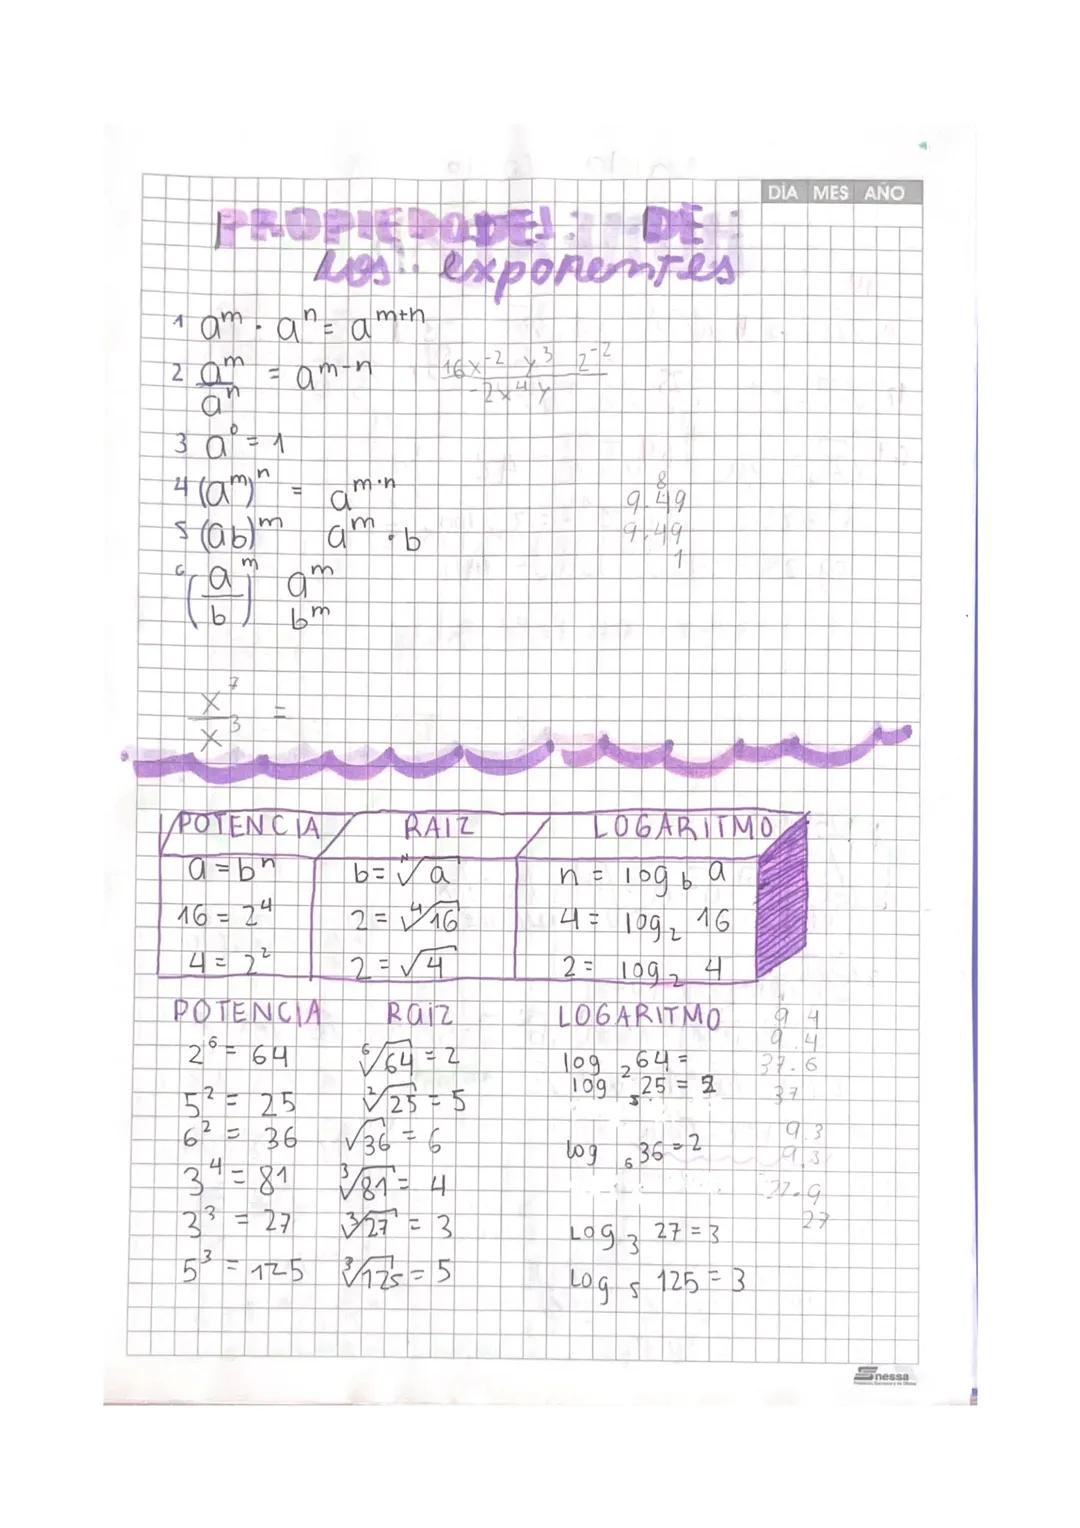 DÍA MES AÑO
PROPIEDADES DE
los exponentes
1 a^m · a^n = a^m+n
2 a^m/a^n = a^m-n 16x^-2 y^3 z^-2/-2x^4 y
3 a^0 = 1
4 (a^m)^n = a^m·n
8
9.49
5 (ab)^m a^m · b
9.49
1
6 (a/b)^m a^m/b^m
x^7/x^3 =
POTENCIA RAIZ LOGARITMO
a = b^n b = ᴺ√a n = log_b a
16 = 2^4 2 = ⁴√16 4 = log_2 16
4 = 2^2 2 = √4 2 = log_2 4
POTENCIA RaiZ LOGARITMO
2^6 = 64 ⁶√64 = 2 log_2 64 =
5^2 = 25 ²√25 = 5 log_5 25 = 2
6^2 = 36 √36 = 6 log_6 36 = 2
3^4 = 81 ³√81 = 4
3^3 = 27 ³√27 = 3 Log_3 27 = 3
5^3 = 125 ³√125 = 5 Log_5 125 = 3
9 4
9.4
37.6
37
9.3
9.3
27.9
27
nessa